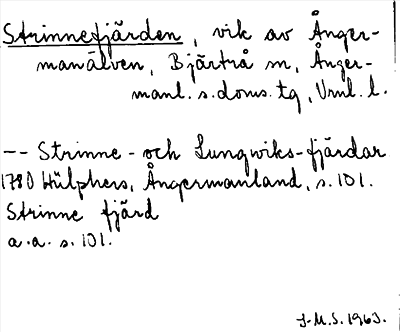 Strinnefjärden, vik av Ånger-
manälven, Bjärtrå sn, Ånger-
manl. s. doms. tg, Vnl. l.
-- Strinne- och Lungwiks-fjärdar
1780 Hülphers, Ångermanland, s. 101.
Strinne fjärd
a.a. s. 101.
J-M.S. 1963.